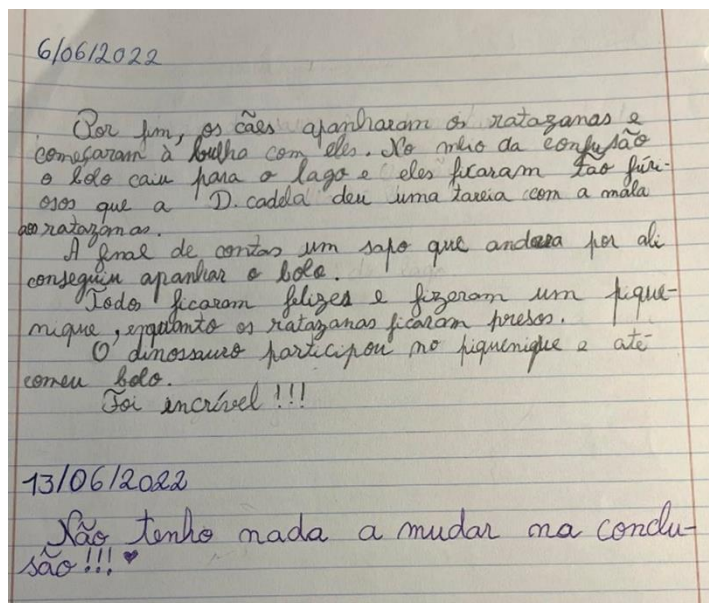 6/06/2022
Por fim, os cães apanharam os ratazanas e
começaram à bulha com eles. No meio da confusão
o bolo caiu para o lago e eles ficaram tão furi-
osos que a D. cadela deu uma tareia com a mala
aos ratazanas.
A final de contas um sapo que andava por ali
conseguiu apanhar o bolo.
Todos ficaram felizes e fizeram um pique-
nique, enquanto os ratazanas ficaram presos.
O dinossauro participou no piquenique e até
comeu bolo.
Foi incrível!!!
13/06/2022
Não tenho nada a mudar na conclu-
são!!! ♥